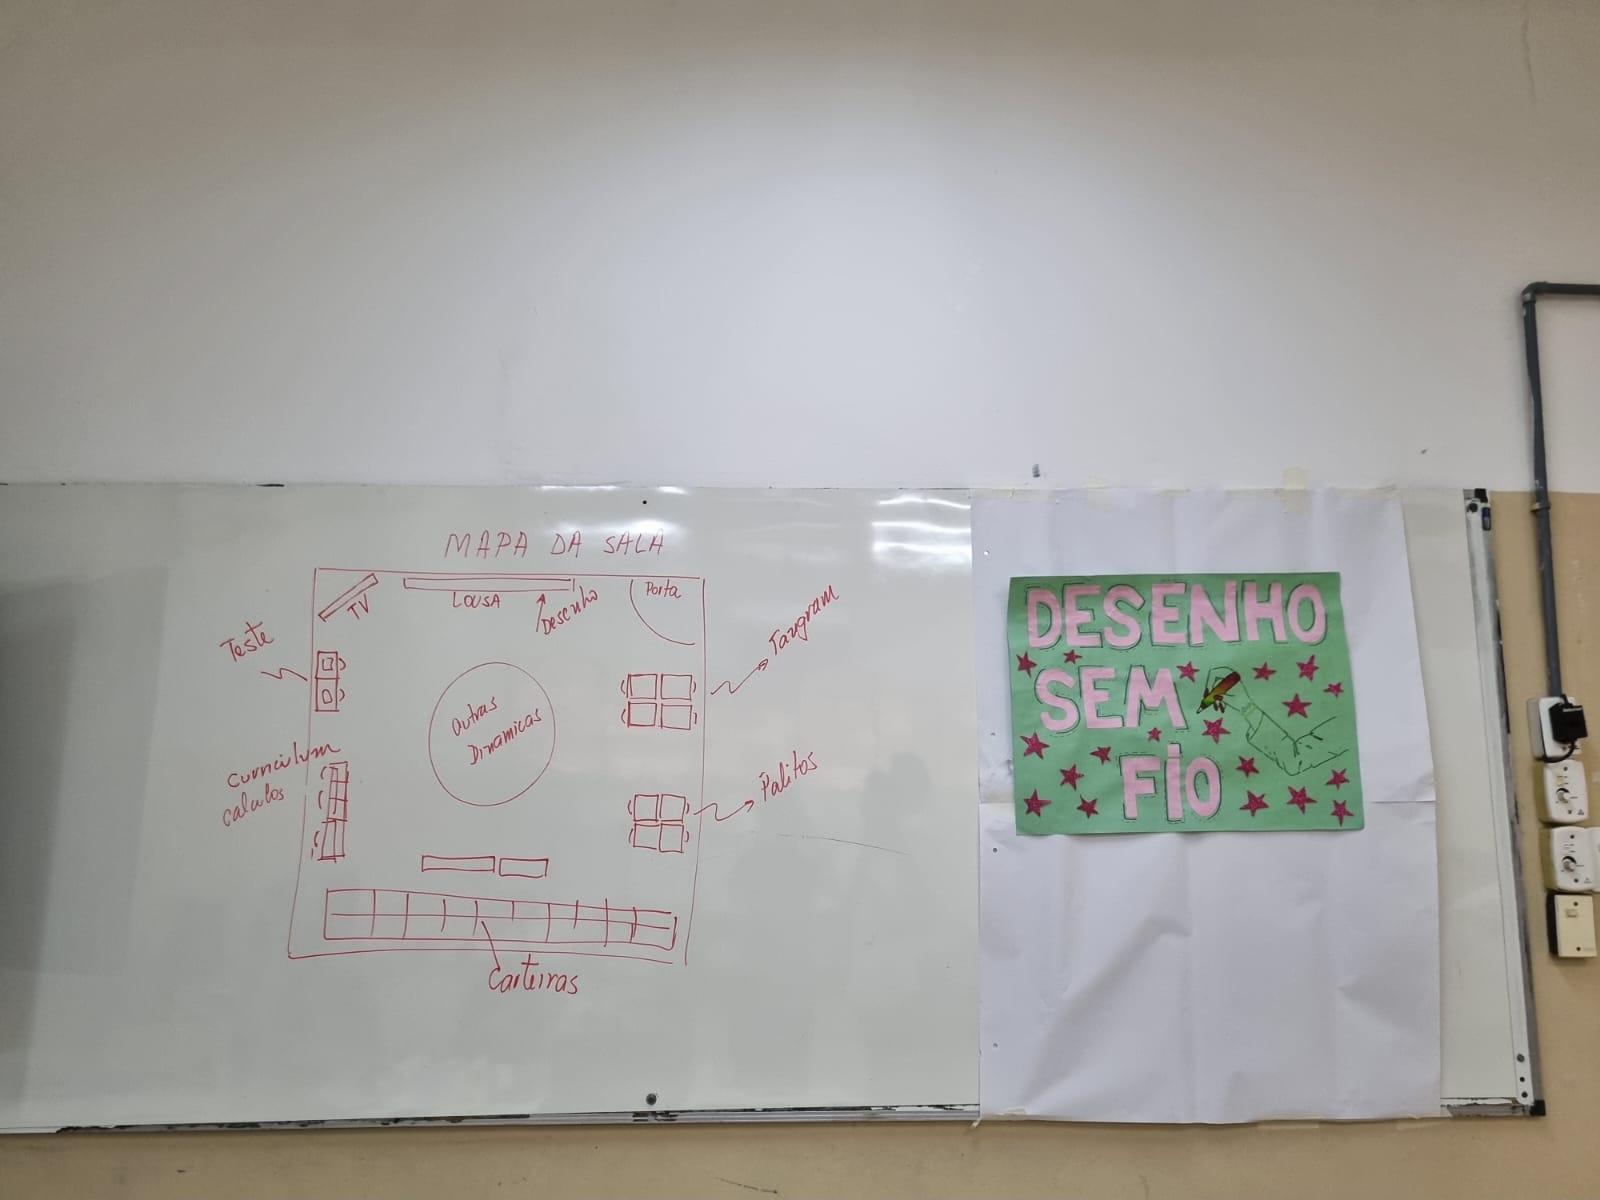 MAPA DA SALA
TV
LOUSA
Desenho
Porta
Teste
Tangram
Outras
Dinamicas
curriculum
calculos
Palitos
Carteiras
DESENHO
SEM
FIO